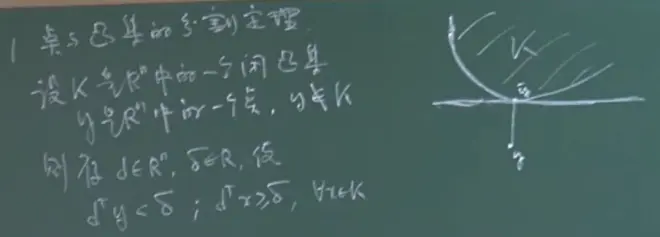 1 点与凸集的分割定理
设K是Rⁿ中的一个闭凸集
y是Rⁿ中的一个点，y∉K
则存d∈Rⁿ，δ∈R，使
dᵀy<δ；dᵀx≥δ，∀x∈K
K
y